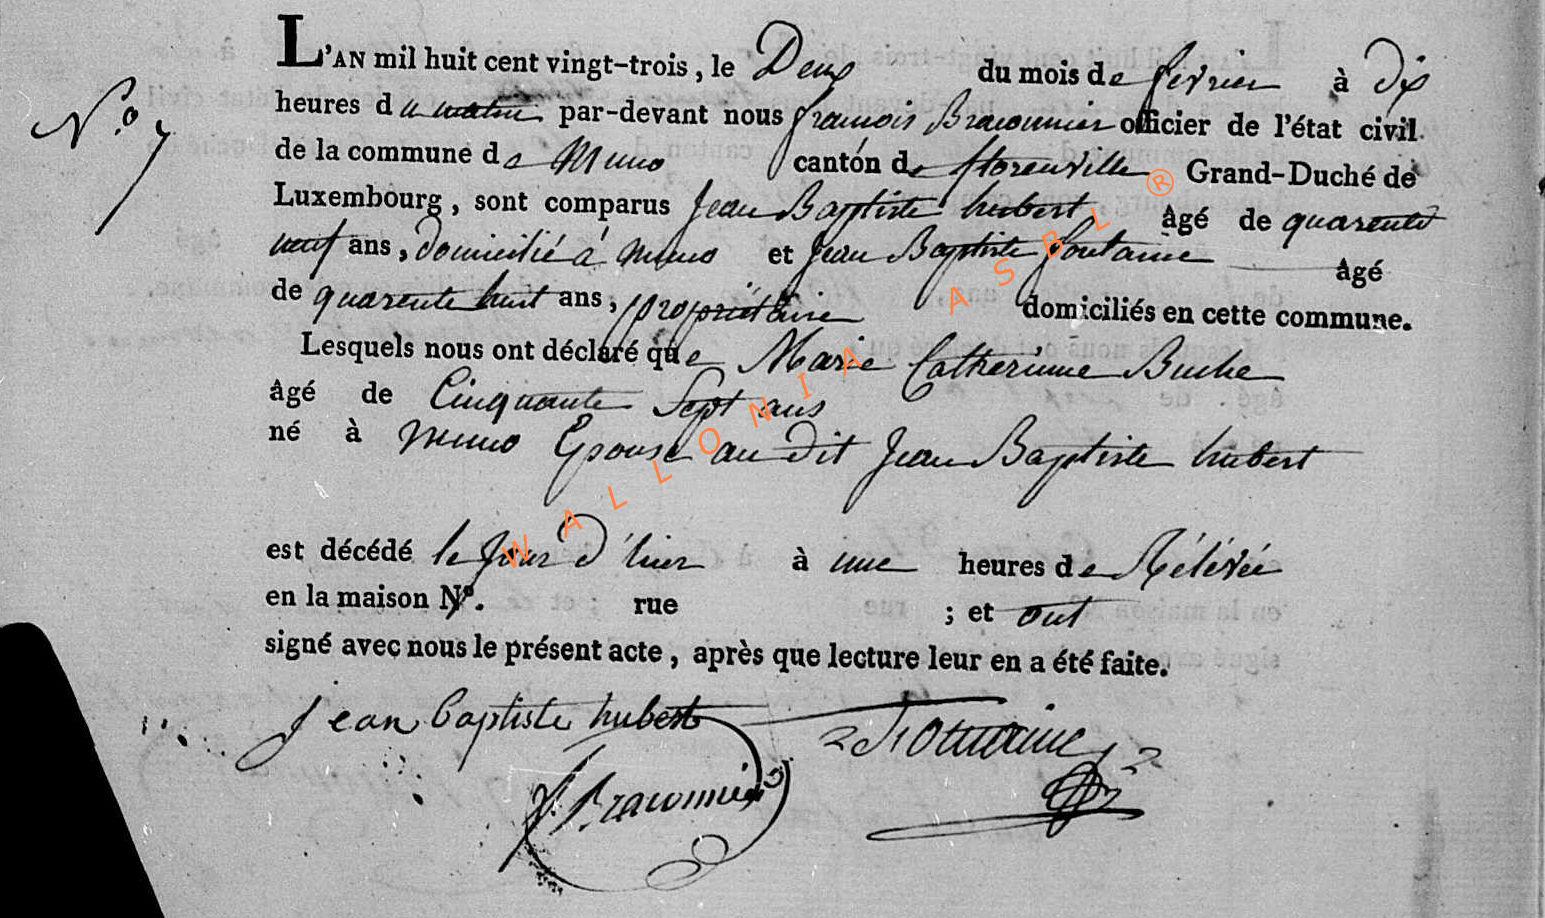 L'AN mil huit cent vingt-trois, le Deux du mois de fevrier à dix
N.º 7
heures du matin par-devant nous francois Braconnier officier de l'état civil
de la commune de Muno canton de florenville Grand-Duché de
Luxembourg, sont comparus Jean Baptiste hubert, âgé de quarente
neuf ans, domicilié à muno et Jean Baptiste fontaine âgé
de quarente huit ans, propriétaire domiciliés en cette commune.
Lesquels nous ont déclaré que Marie Catherinne Buche
âgé de Cinquante Sept ans
né à muno Epouse au dit Jean Baptiste hubert
est décédé le jour d'hier à une heures de Rélévée
en la maison Nº. rue ; et ont
signé avec nous le présent acte, après que lecture leur en a été faite.
jean baptiste hubert
f. Braconnier
WALLONIA ASBL ®